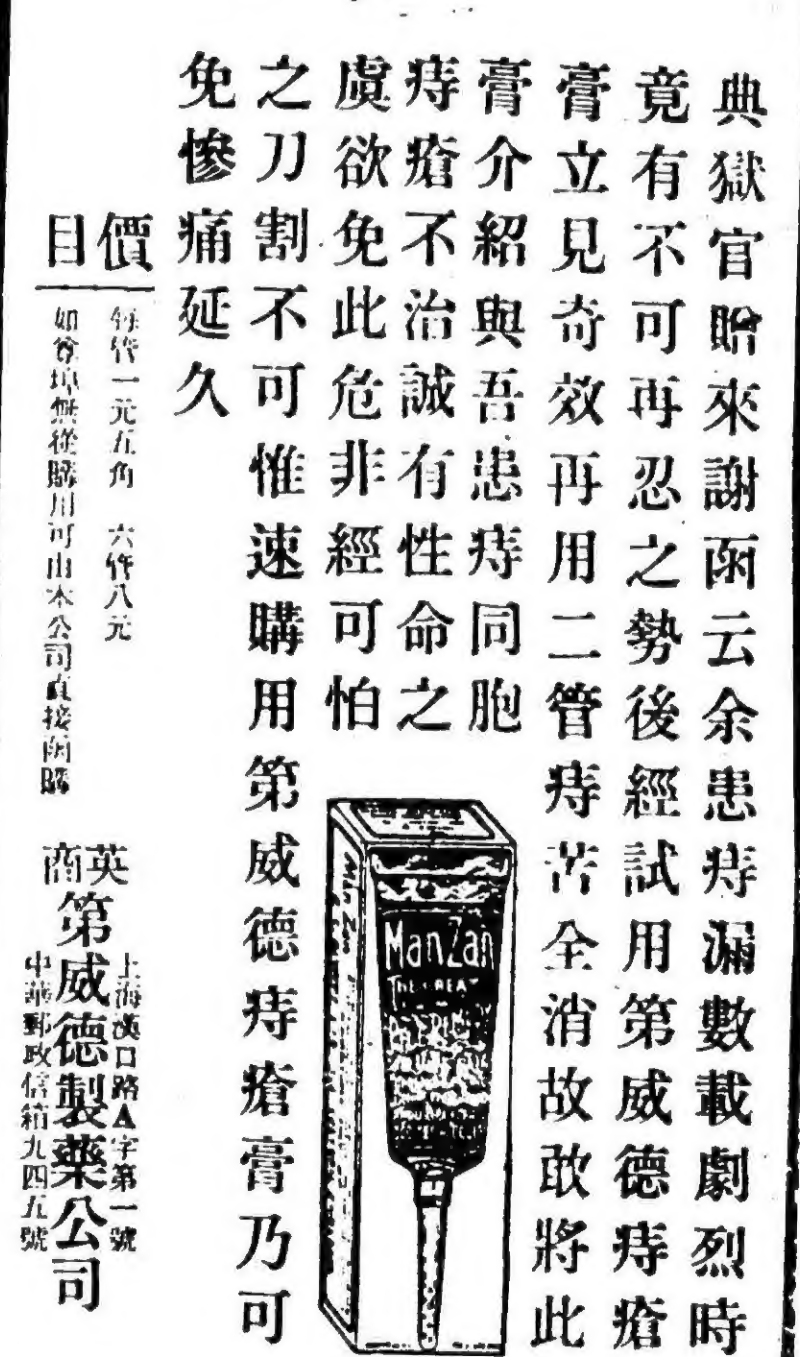 典獄官贈來謝函云余患痔漏數載劇烈時
竟有不可再忍之勢後經試用第威德痔瘡
膏立見奇效再用二管痔苦全消故敢將此
膏介紹與吾患痔同胞
痔瘡不治誠有性命之
虞欲免此危非經可怕
之刀割不可惟速購用第威德痔瘡膏乃可
免慘痛延久
價目
每管一元五角 六管八元
如貴埠無從購用可由本公司直接函購
英商
第威德製藥公司
上海漢口路A字第一號
中華郵政信箱九四五號
ManZan
THE GREAT